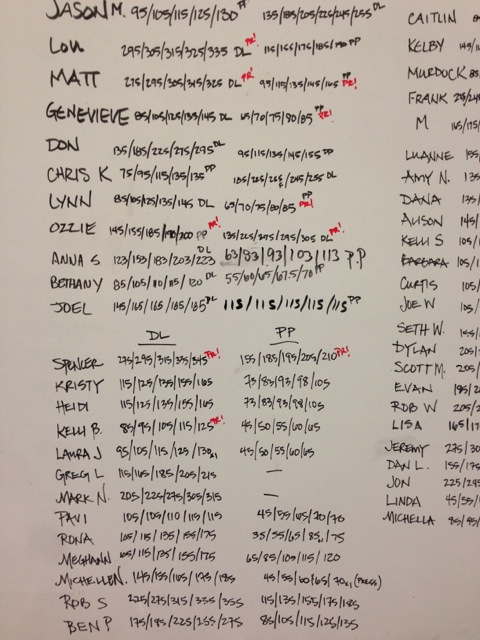 JASON M. 95/105/115/125/130 PP 135/185/205/225/245/255 DL
LOU 295/305/315/325/335 DL PR! 115/155/175/185/190 PP
MATT 275/295/305/315/325 DL PR! 95/115/135/145/165 PP PR!
GENEVIEVE 85/105/125/135/145 DL 65/70/75/80/85 PP PR!
DON 135/185/225/275/295 DL 95/115/135/145/155 PP
CHRIS K 75/95/115/135/135 PP 185/225/255/245/255 DL
LYNN 85/105/125/135/145 DL 65/70/75/80/85 PP PR!
OZZIE 145/155/185/190/200 PP PR! 135/225/275/295/305 DL PR!
ANNA S 123/153/183/203/223 DL 63/83/93/103/113 P.P
BETHANY 85/105/110/115/120 DL 55/60/65/67.5/70 PP
JOEL 145/165/165/185/185 DL 115/115/115/115/115 PP
DL PP
SPENCER 275/295/315/335/345 PR! 155/185/195/205/210 PR!
KRISTY 115/125/135/155/165 73/83/93/98/105
HEIDI 115/125/135/155/165 73/83/93/98/105
KELLI B. 85/95/105/115/125 PR! 45/50/55/60/65
LAURA J 95/105/115/125/130 45/50/55/60/65
GREG L 115/165/185/205/215 —
MARK N. 205/225/275/305/315 —
PAVI 105/105/110/115/115 45/55/65/70/70
RONA 105/115/135/155/175 35/55/65/85/75
MEGHANN 105/115/135/155/175 65/85/105/115/120
MICHELLE N. 145/155/165/175/185 45/55/60/65/70x1 (PRESS)
ROB S 225/275/315/335/355 115/135/155/175/185
BEN P 175/185/225/255/275 85/105/115/125/135
CAITLIN
KELBY
MURDOCK
FRANK
M
LUANNE
AMY N.
DANA
ALISON
KELLI S
BARBARA
CURTIS
JOE W
SETH W.
DYLAN
SCOTT M.
EVAN
ROB W
LISA
JEREMY
DAN L.
JON
LINDA
MICHELLA